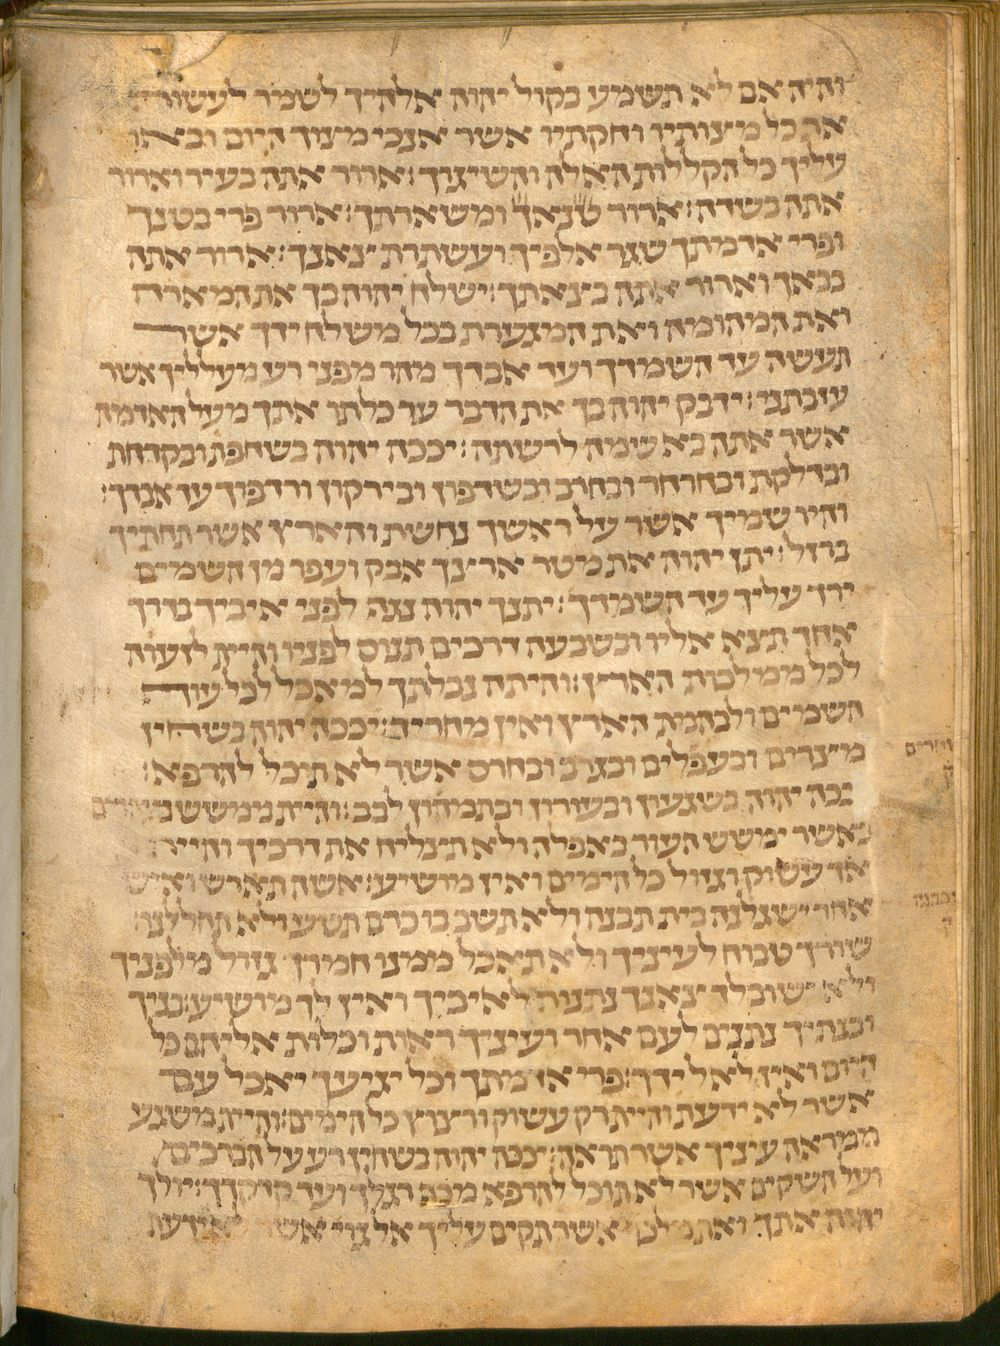 והיה אם לא תשמע בקול יהוה אלהיך לשמר לעשות
את כל מצותיו וחקתיו אשר אנכי מצוך היום ובאו
עליך כל הקללות האלה והשיגוך׃ ארור אתה בעיר וארור
אתה בשדה׃ ארור טנאך ומשארתך׃ ארור פרי בטנך
ופרי אדמתך שגר אלפיך ועשתרת צאנך׃ ארור אתה
בבאך וארור אתה בצאתך׃ ישלח יהוה בך את המארה
ואת המהומה ואת המגערת בכל משלח ידך אשר
תעשה עד השמדך ועד אבדך מהר מפני רע מעלליך אשר
עזבתני׃ ידבק יהוה בך את הדבר עד כלתו אתך מעל האדמה
אשר אתה בא שמה לרשתה׃ יככה יהוה בשחפת ובקדחת
ובדלקת ובחרחר ובחרב ובשדפון ובירקון ורדפוך עד אבדך׃
והיו שמיך אשר על ראשך נחשת והארץ אשר תחתיך
ברזל׃ יתן יהוה את מטר ארצך אבק ועפר מן השמים
ירד עליך עד השמדך׃ יתנך יהוה נגף לפני איביך בדרך
אחד תצא אליו ובשבעה דרכים תנוס לפניו והיית לזעוה
לכל ממלכות הארץ׃ והיתה נבלתך למאכל לכל עוף
השמים ולבהמת הארץ ואין מחריד׃ יככה יהוה בשחין
מצרים ובעפלים ובגרב ובחרס אשר לא תוכל להרפא׃
יככה יהוה בשגעון ובעורון ובתמהון לבב׃ והיית ממשש בצהרים
כאשר ימשש העור באפלה ולא תצליח את דרכיך והיית
אך עשוק וגזול כל הימים ואין מושיע׃ אשה תארש ואיש
אחר ישגלנה בית תבנה ולא תשב בו כרם תטע ולא תחללנו׃
שורך טבוח לעיניך ולא תאכל ממנו חמרך גזול מלפניך
ולא ישוב לך צאנך נתנות לאיביך ואין לך מושיע׃ בניך
ובנתיך נתנים לעם אחר ועיניך ראות וכלות אליהם כל
היום ואין לאל ידך׃ פרי אדמתך וכל יגיעך יאכל עם
אשר לא ידעת והיית רק עשוק ורצוץ כל הימים׃ והיית משגע
ממראה עיניך אשר תראה׃ יככה יהוה בשחין רע על הברכים
ועל השקים אשר לא תוכל להרפא מכף רגלך ועד קדקדך׃ יולך
יהוה אתך ואת מלכך אשר תקים עליך אל גוי אשר לא ידעת